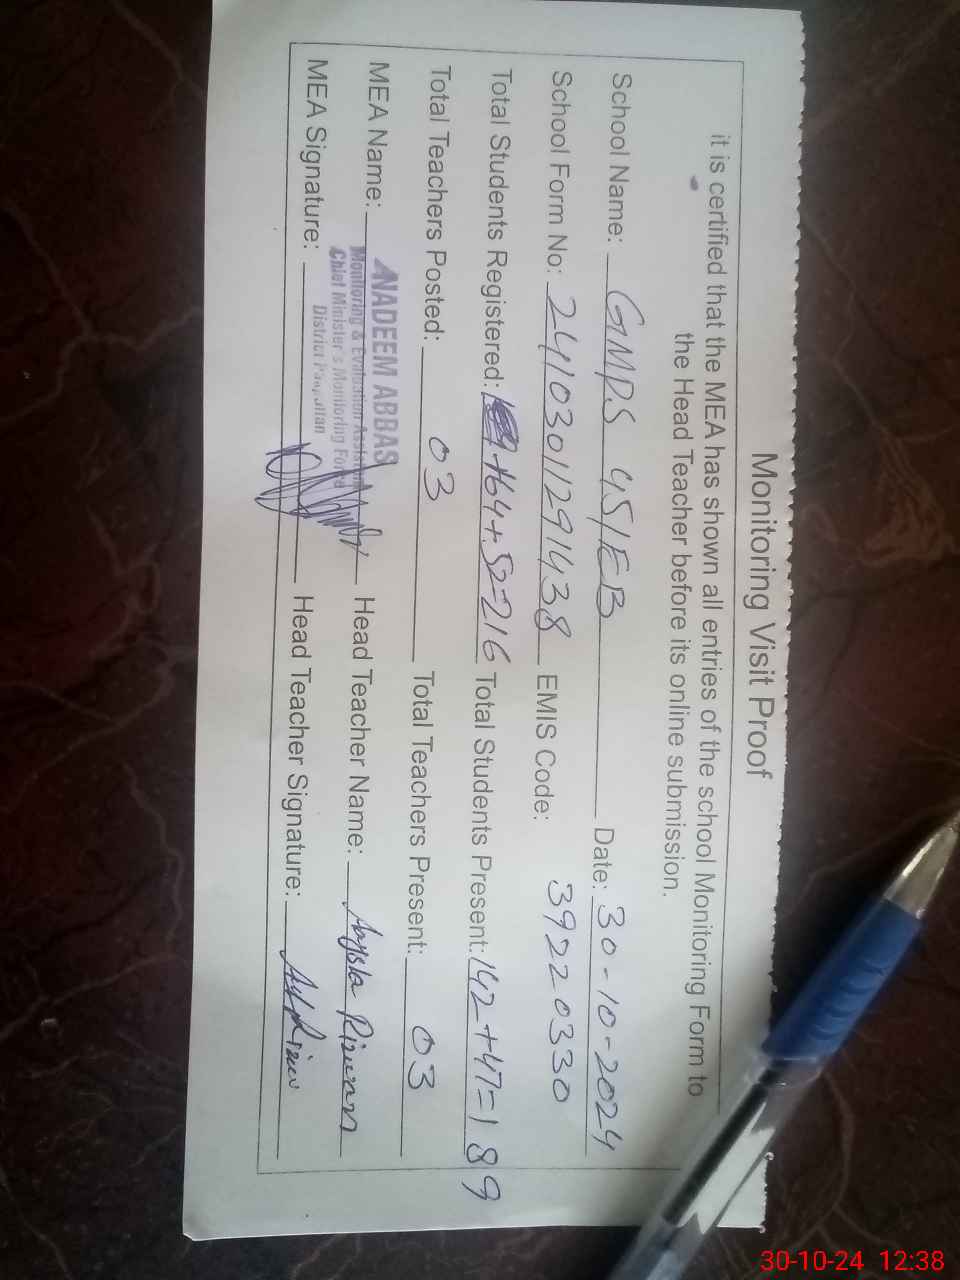 Monitoring Visit Proof
it is certified that the MEA has shown all entries of the school Monitoring Form to
the Head Teacher before its online submission.
School Name: GMPS 45/EB Date: 30-10-2024
School Form No: 24103011291438 EMIS Code: 39220330
Total Students Registered: 164+52=216 Total Students Present: 142+47=189
Total Teachers Posted: 03 Total Teachers Present: 03
MEA Name: NADEEM ABBAS Head Teacher Name: Rizwan
Monitoring & Evaluation
Chief Minister's Monitoring Force
District
MEA Signature: Head Teacher Signature:
30-10-24 12:38